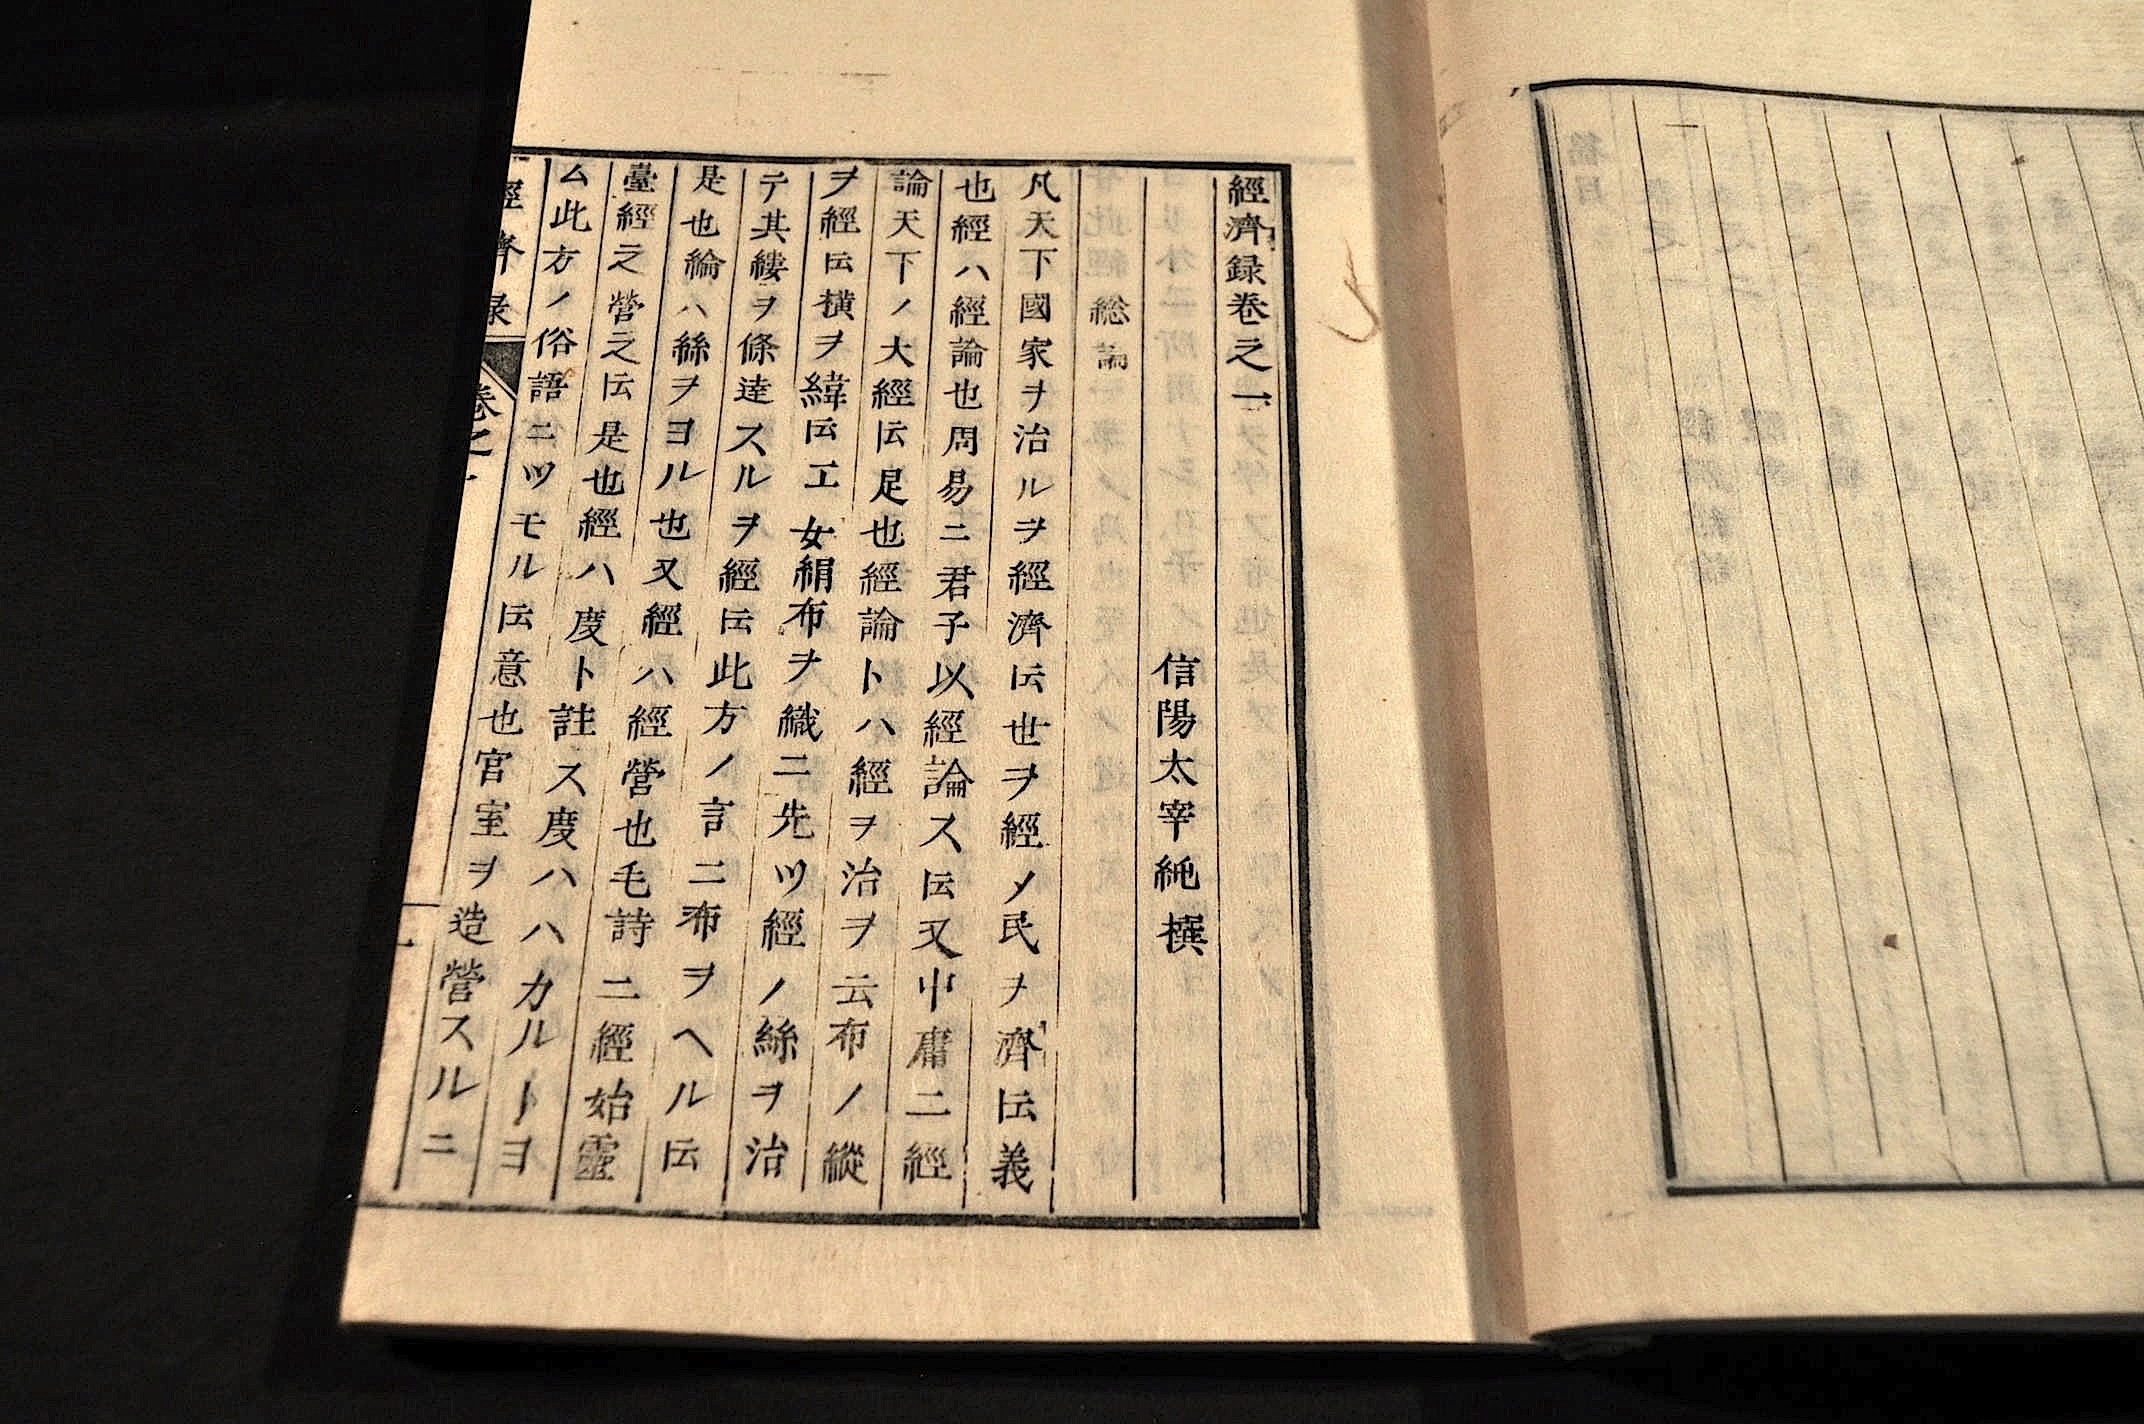 經濟録卷之一
信陽太宰純撰
総論
凡天下國家ヲ治ルヲ經濟ト云世ヲ經メ民ヲ濟ト云義
也經ハ經論也周易ニ君子以經論スト云又中庸ニ經
論天下ノ大經ト云是也經論トハ經ヲ治ヲ云布ノ縱
ヲ經ト云橫ヲ緯ト云工女絹布ヲ織ニ先ツ經ノ絲ヲ治
テ其縷ヲ條達スルヲ經ト云此方ノ言ニ布ヲヘルト云
是也綸ハ絲ヲヨル也又經ハ經營也毛詩ニ經始靈
臺經之營之ト云是也經ハ度ト註ス度ハハカルトヨ
ム此方ノ俗語ニツモルト云意也官室ヲ造營スルニ
經齊录 卷之一 一